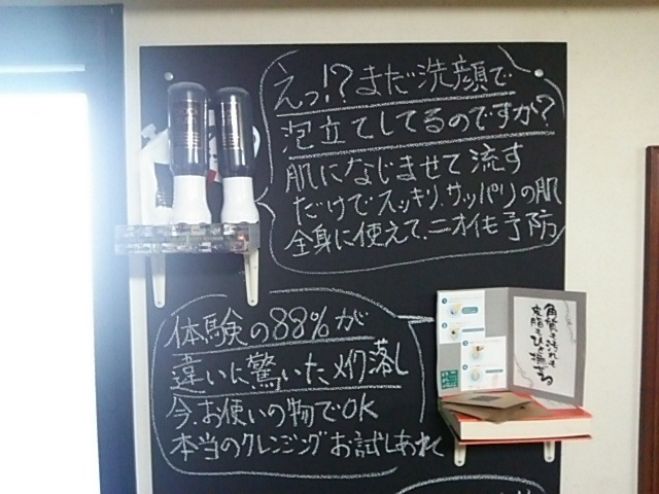 えっ!?まだ洗顔で
泡立てしてるのですか?
肌になじませて流す
だけでスッキリ.サッパリの肌
全身に使えて、ニオイも予防
体験の88%が
違いに驚いたメイク落し
今、お使いの物でOK
本当のクレンジングお試しあれ
角質も汚れも
皮脂もひと塗る